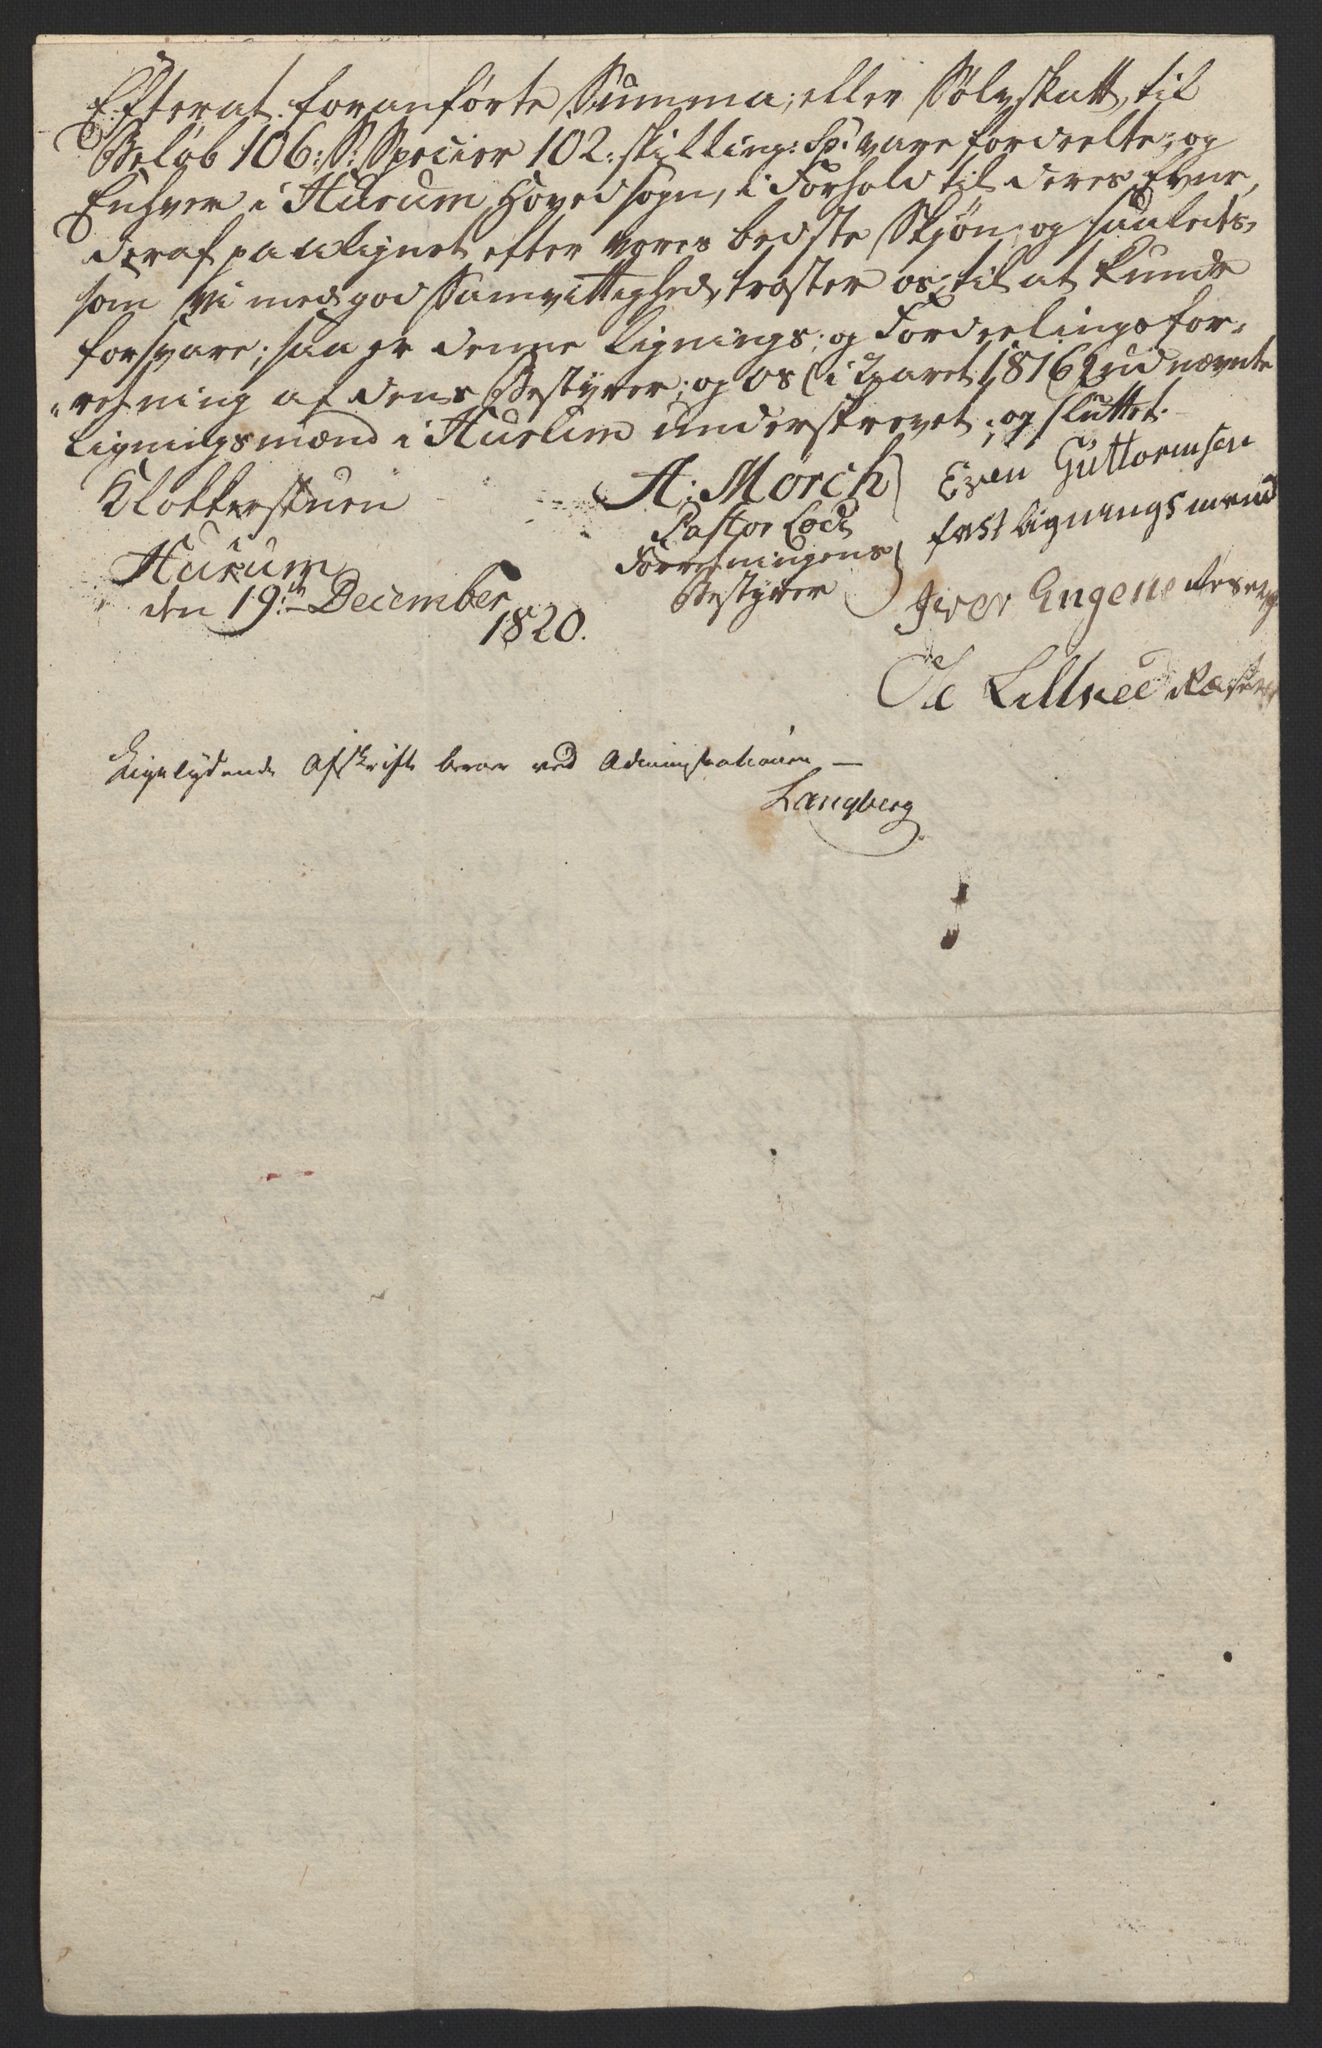 Efterat foranførte Summa, eller Sølvskatt, til
Beløb 106: S: Specier 102: skilling: Sp: vare fordeelte, og
Enhver i Hurum Hovedsogn, i Forhold til deres Evne,
deraf paalignet efter vores bedste Skjøn, og saaleds,
som vi med god Samvittighed, trøster os til at kunde
forsvare; saa er denne Lignings, og Fordeelingsfor-
retning af dens Bestyrer, og os (i Aaret 1816) udnævnte
Ligningsmænd i Hurum underskrevet, og sluttet.
Klokkerstuen
i
Hurum,
den 19:de December
1820.
A: Mørch
Pastor Loci
Forretningens
Bestyrer
Even Guttormsen
fast Ligningsmand
Iver Engene
Ole
Ligelydende Afskrift beroer ved Administrationen —
Langberg